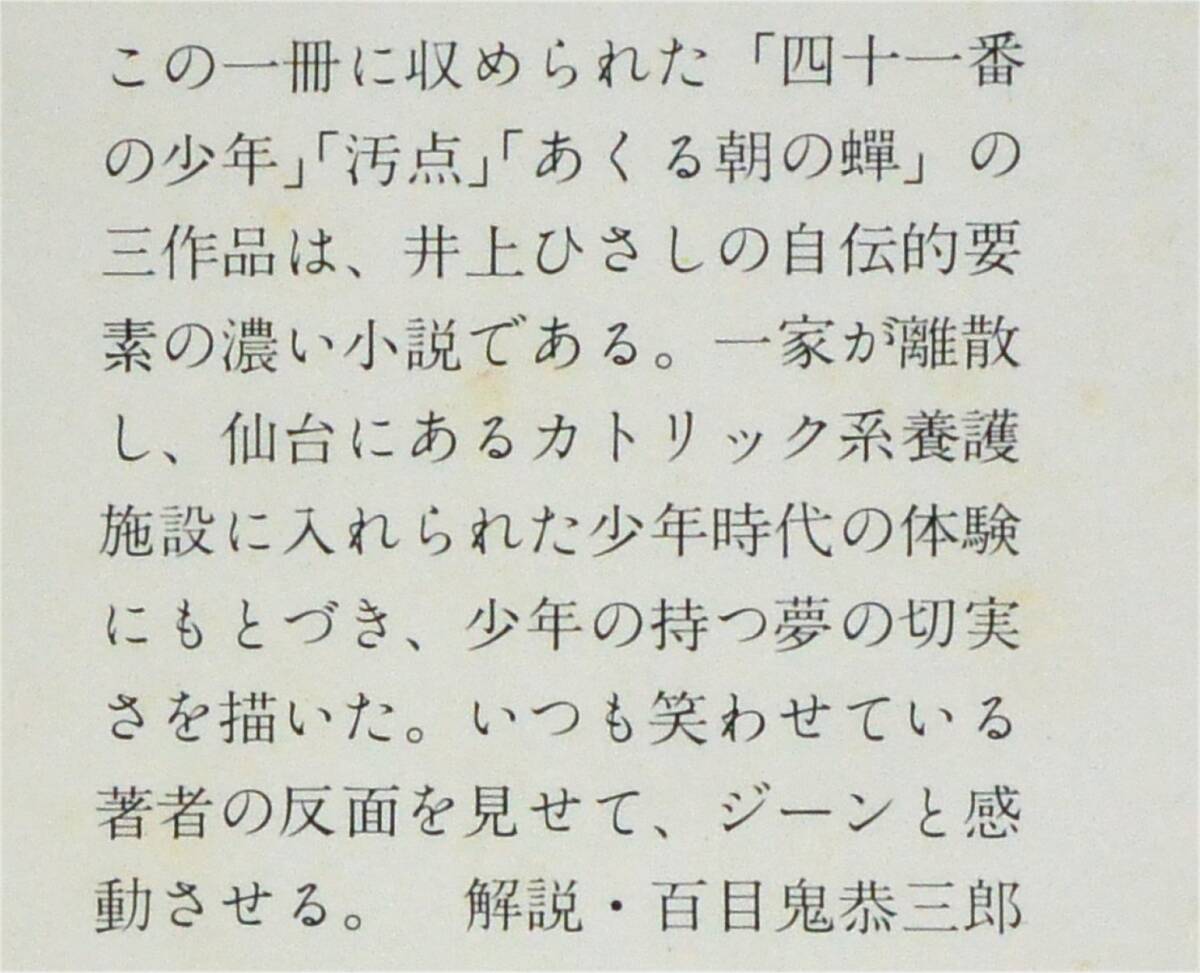 この一冊に収められた「四十一番
の少年」「汚点」「あくる朝の蟬」の
三作品は、井上ひさしの自伝的要
素の濃い小説である。一家が離散
し、仙台にあるカトリック系養護
施設に入れられた少年時代の体験
にもとづき、少年の持つ夢の切実
さを描いた。いつも笑わせている
著者の反面を見せて、ジーンと感
動させる。　解説・百目鬼恭三郎